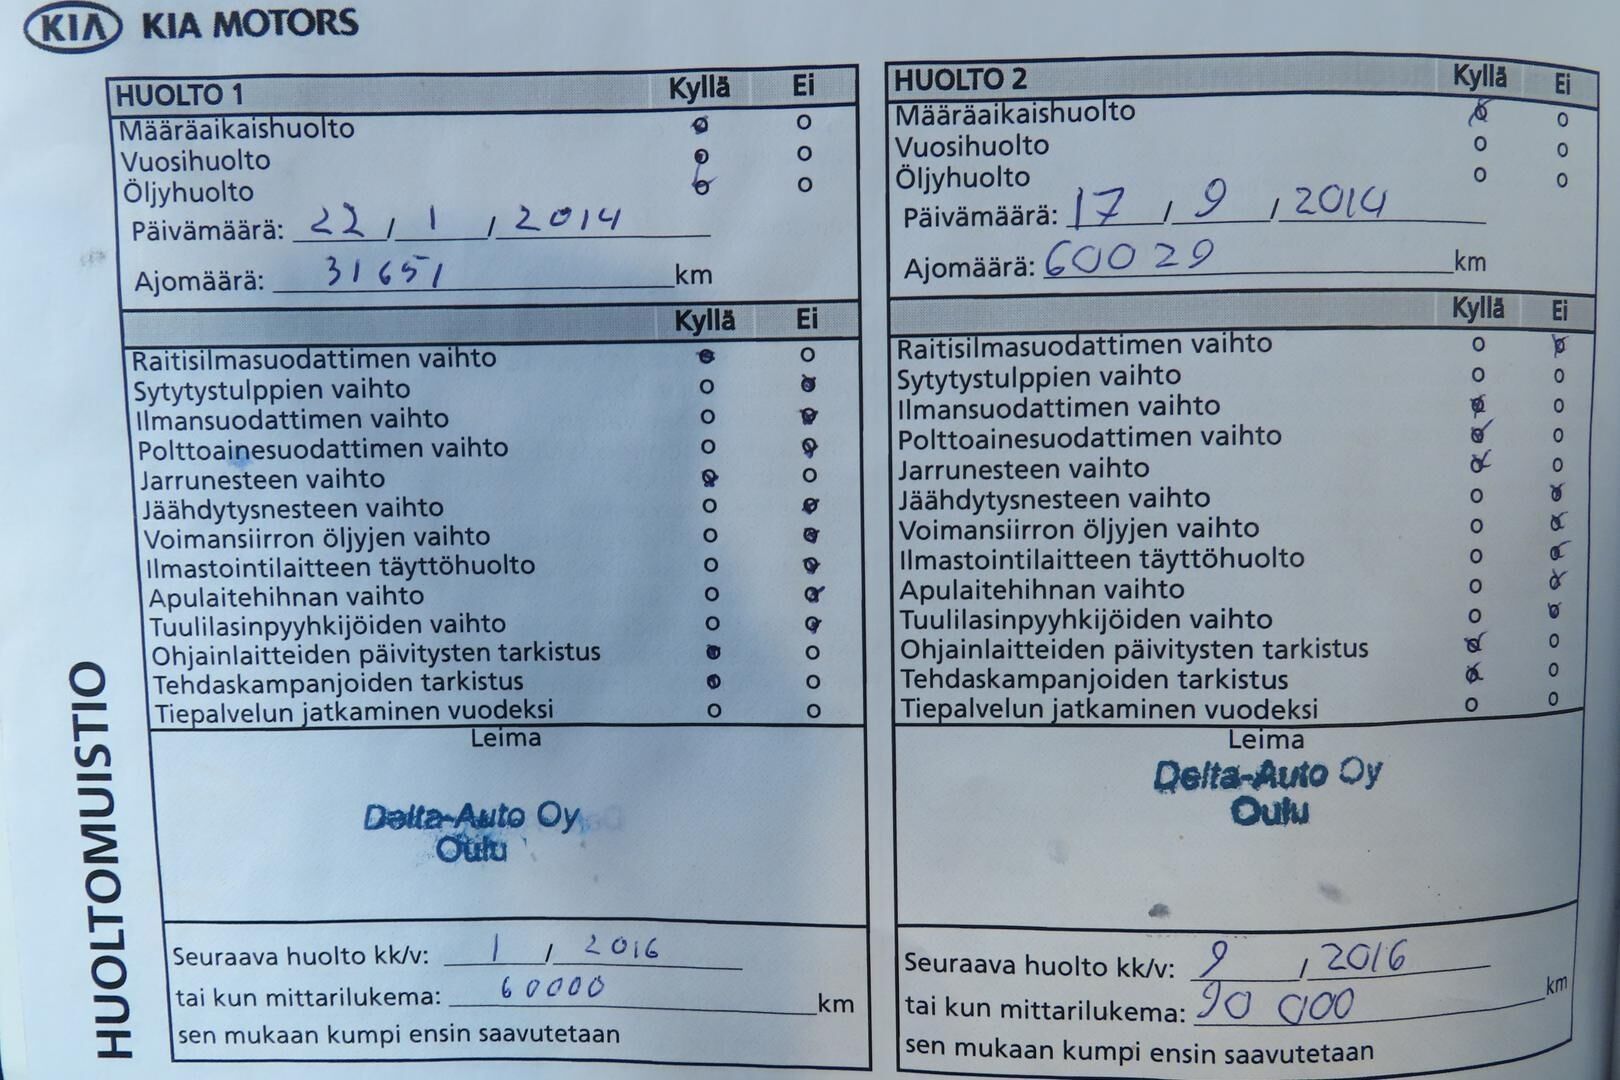 KIA KIA MOTORS
HUOLTOMUISTIO
HUOLTO 1 Kyllä Ei
Määräaikaishuolto
Vuosihuolto
Öljyhuolto
Päivämäärä: 22 / 1 / 2014
Ajomäärä: 31651 km
Kyllä Ei
Raitisilmasuodattimen vaihto
Sytytystulppien vaihto
Ilmansuodattimen vaihto
Polttoainesuodattimen vaihto
Jarrunesteen vaihto
Jäähdytysnesteen vaihto
Voimansiirron öljyjen vaihto
Ilmastointilaitteen täyttöhuolto
Apulaitehihnan vaihto
Tuulilasinpyyhkijöiden vaihto
Ohjainlaitteiden päivitysten tarkistus
Tehdaskampanjoiden tarkistus
Tiepalvelun jatkaminen vuodeksi
Leima
Delta-Auto Oy
Oulu
Seuraava huolto kk/v: 1 / 2016
tai kun mittarilukema: 60000 km
sen mukaan kumpi ensin saavutetaan
HUOLTO 2 Kyllä Ei
Määräaikaishuolto
Vuosihuolto
Öljyhuolto
Päivämäärä: 17 / 9 / 2014
Ajomäärä: 60029 km
Kyllä Ei
Raitisilmasuodattimen vaihto
Sytytystulppien vaihto
Ilmansuodattimen vaihto
Polttoainesuodattimen vaihto
Jarrunesteen vaihto
Jäähdytysnesteen vaihto
Voimansiirron öljyjen vaihto
Ilmastointilaitteen täyttöhuolto
Apulaitehihnan vaihto
Tuulilasinpyyhkijöiden vaihto
Ohjainlaitteiden päivitysten tarkistus
Tehdaskampanjoiden tarkistus
Tiepalvelun jatkaminen vuodeksi
Leima
Delta-Auto Oy
Oulu
Seuraava huolto kk/v: 9 / 2016
tai kun mittarilukema: 90 000 km
sen mukaan kumpi ensin saavutetaan